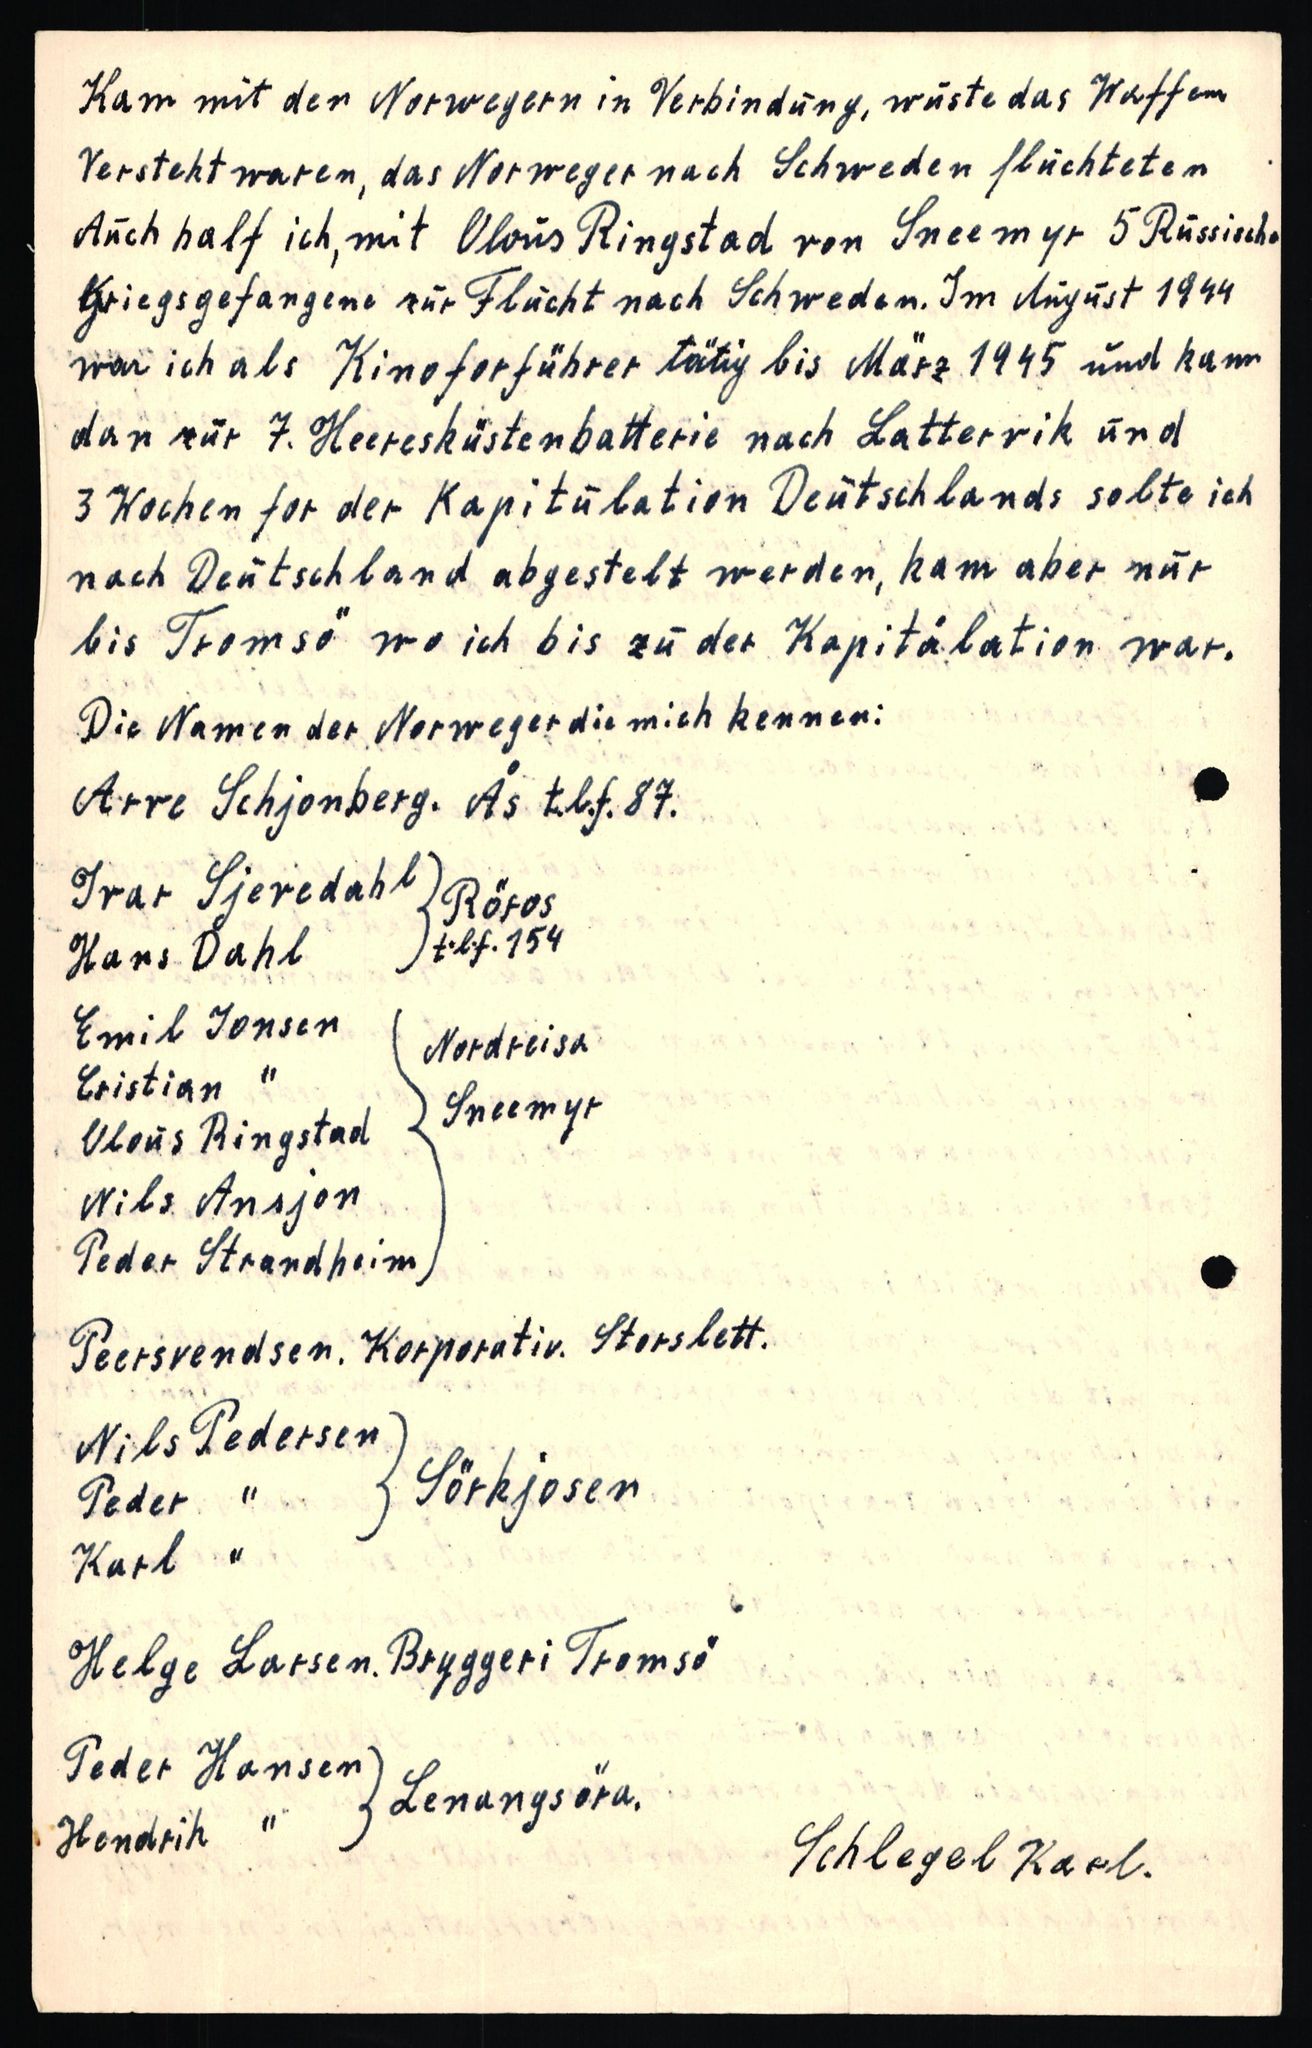 Kam mit den Norwegern in Verbindung, wuste das Waffen
Verstekt waren, das Norweger nach Schweden fluchteten
Auch half ich, mit Olous Ringstad von Sneemyr 5 Russische
Kriegsgefangene zur Flucht nach Schweden. Im August 1944
war ich als Kinoforführer tätig bis März 1945 und kam
dan zur 7. Heeresküstenbatterie nach Lattervik und
3 Wochen for der Kapitulation Deutschlands solte ich
nach Deutschland abgestelt werden, kam aber nur
bis Tromsö wo ich bis zu der Kapitulation war.
Die Namen der Norweger die mich kennen:
Arve Schjonberg. Ås t.l.f. 87.
Ivar Sjevedahl
Hans Dahl
Röros
t.l.f. 154
Emil Jonsen
Cristian "
Olous Ringstad
Nils Ansjon
Peder Strandheim
Nordreisa
Sneemyr
Peersvendsen. Korporativ. Storslett.
Nils Pedersen
Peder "
Karl "
Sörkjosen
Helge Larsen. Bryggeri Tromsö
Peder Hansen
Hendrik "
Lenangsöra.
Schlegel Karl.